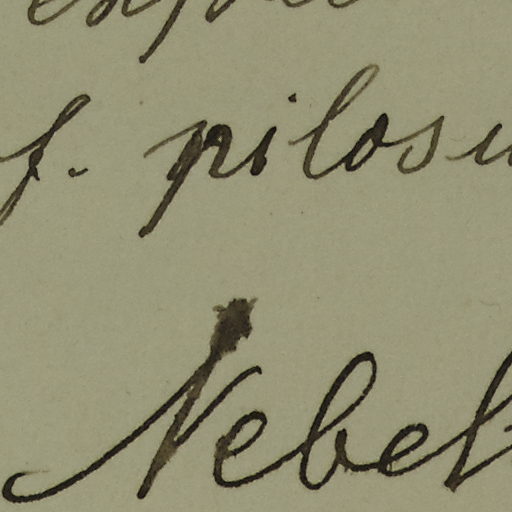 f. pilosu
Nebel